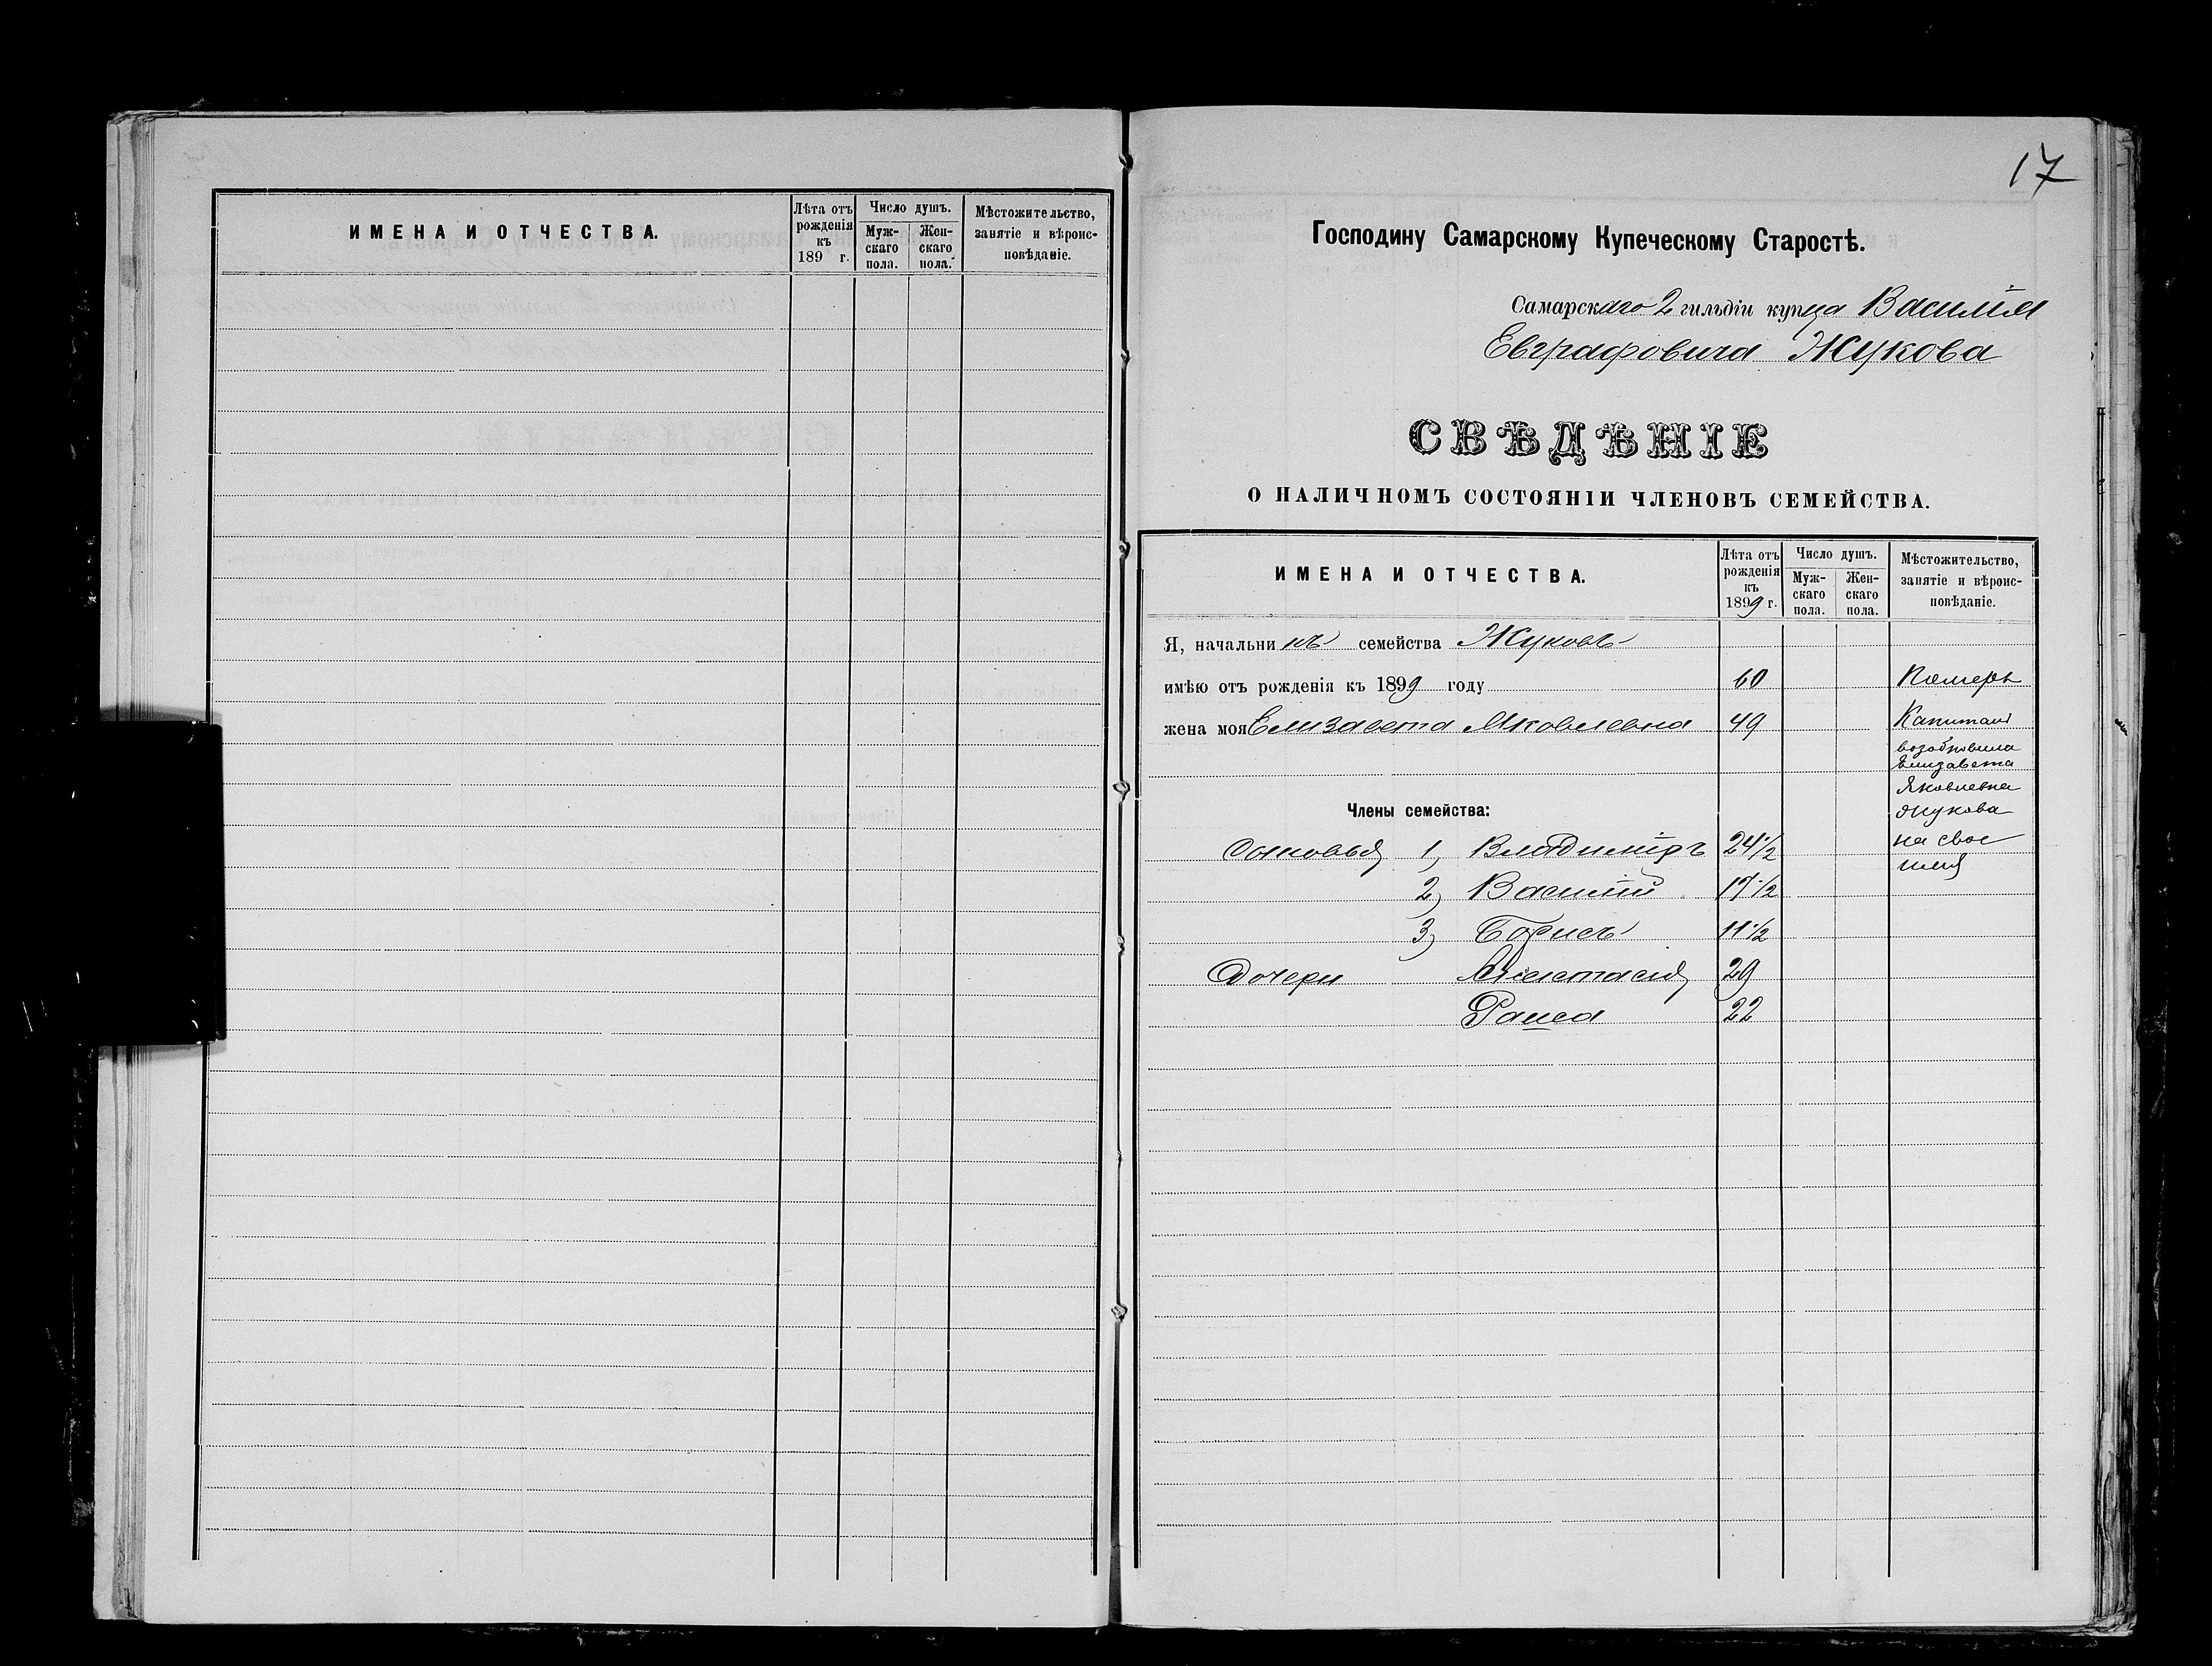 ИМЕНА И ОТЧЕСТВА.
Лѣта отъ рожденія къ 189 г.
Число душъ.
Мужскаго пола.
Женскаго пола.
Мѣстожительство, занятіе и вѣроисповѣданіе.
17
Господину Самарскому Купеческому Старостѣ.
Самарскаго 2 гильдіи купца Василія
Евграфовича Жукова
СВѢДѢНІЕ
О НАЛИЧНОМЪ СОСТОЯНІИ ЧЛЕНОВЪ СЕМЕЙСТВА.
ИМЕНА И ОТЧЕСТВА.
Лѣта отъ рожденія къ 1899 г.
Число душъ.
Мужскаго пола.
Женскаго пола.
Мѣстожительство, занятіе и вѣроисповѣданіе.
Я, начальникъ семейства Жуковъ
имѣю отъ рожденія къ 1899 году 60 Померъ
жена моя Елизавета Яковлевна 49 Капиталъ
возобновила
Елизавета
Яковлевна
Жукова
Члены семейства:
Сыновья 1) Владиміръ 24 1/2 на свое
имя
2) Василій 17 1/2
3) Борисъ 11 1/2
Дочери Анастасія 29
Раиса 22